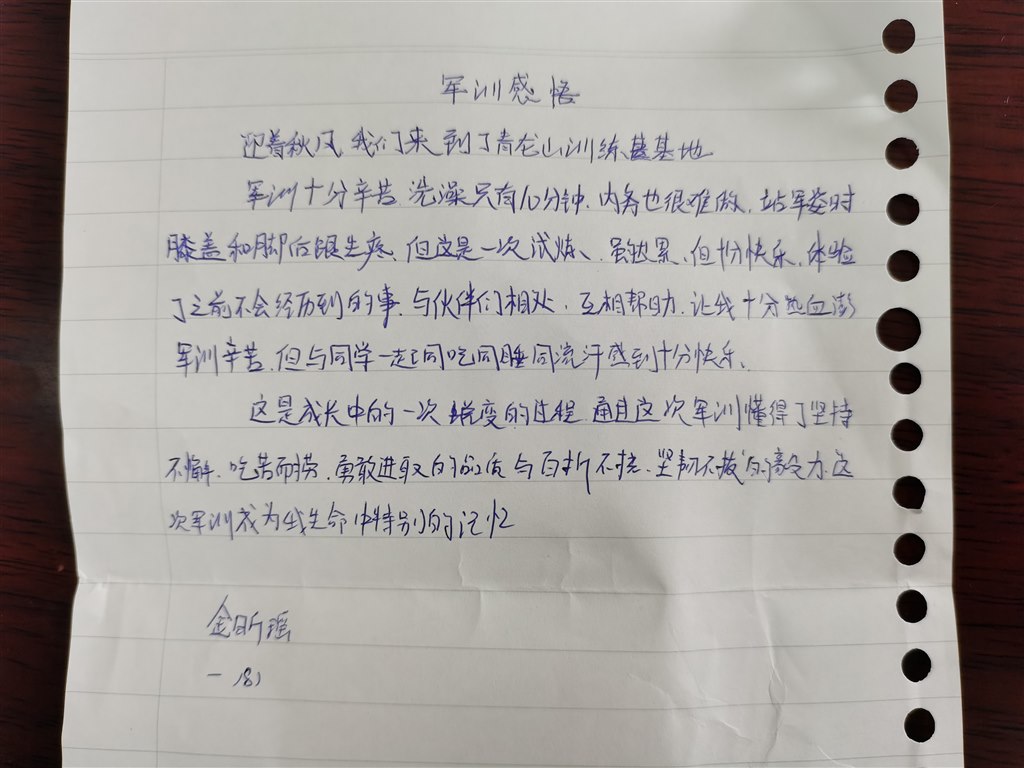 军训感悟
迎着秋风,我们来到了青龙山训练基地
军训十分辛苦,洗澡只有10分钟,内务也很难做,站军姿时
膝盖和脚后跟生疼,但这是一次试炼、虽劳累,但十分快乐,体验
了之前不会经历到的事,与伙伴们相处,互相帮助,让我十分热血澎
军训辛苦,但与同学一起同吃同睡同流汗感到十分快乐、
这是成长中的一次蜕变的过程,通过这次军训懂得了坚持
不懈、吃苦耐劳,勇敢进取的品质与百折不挠、坚韧不拔的毅力,这
次军训成为我生命中特别的记忆
金昕瑶
一（8）